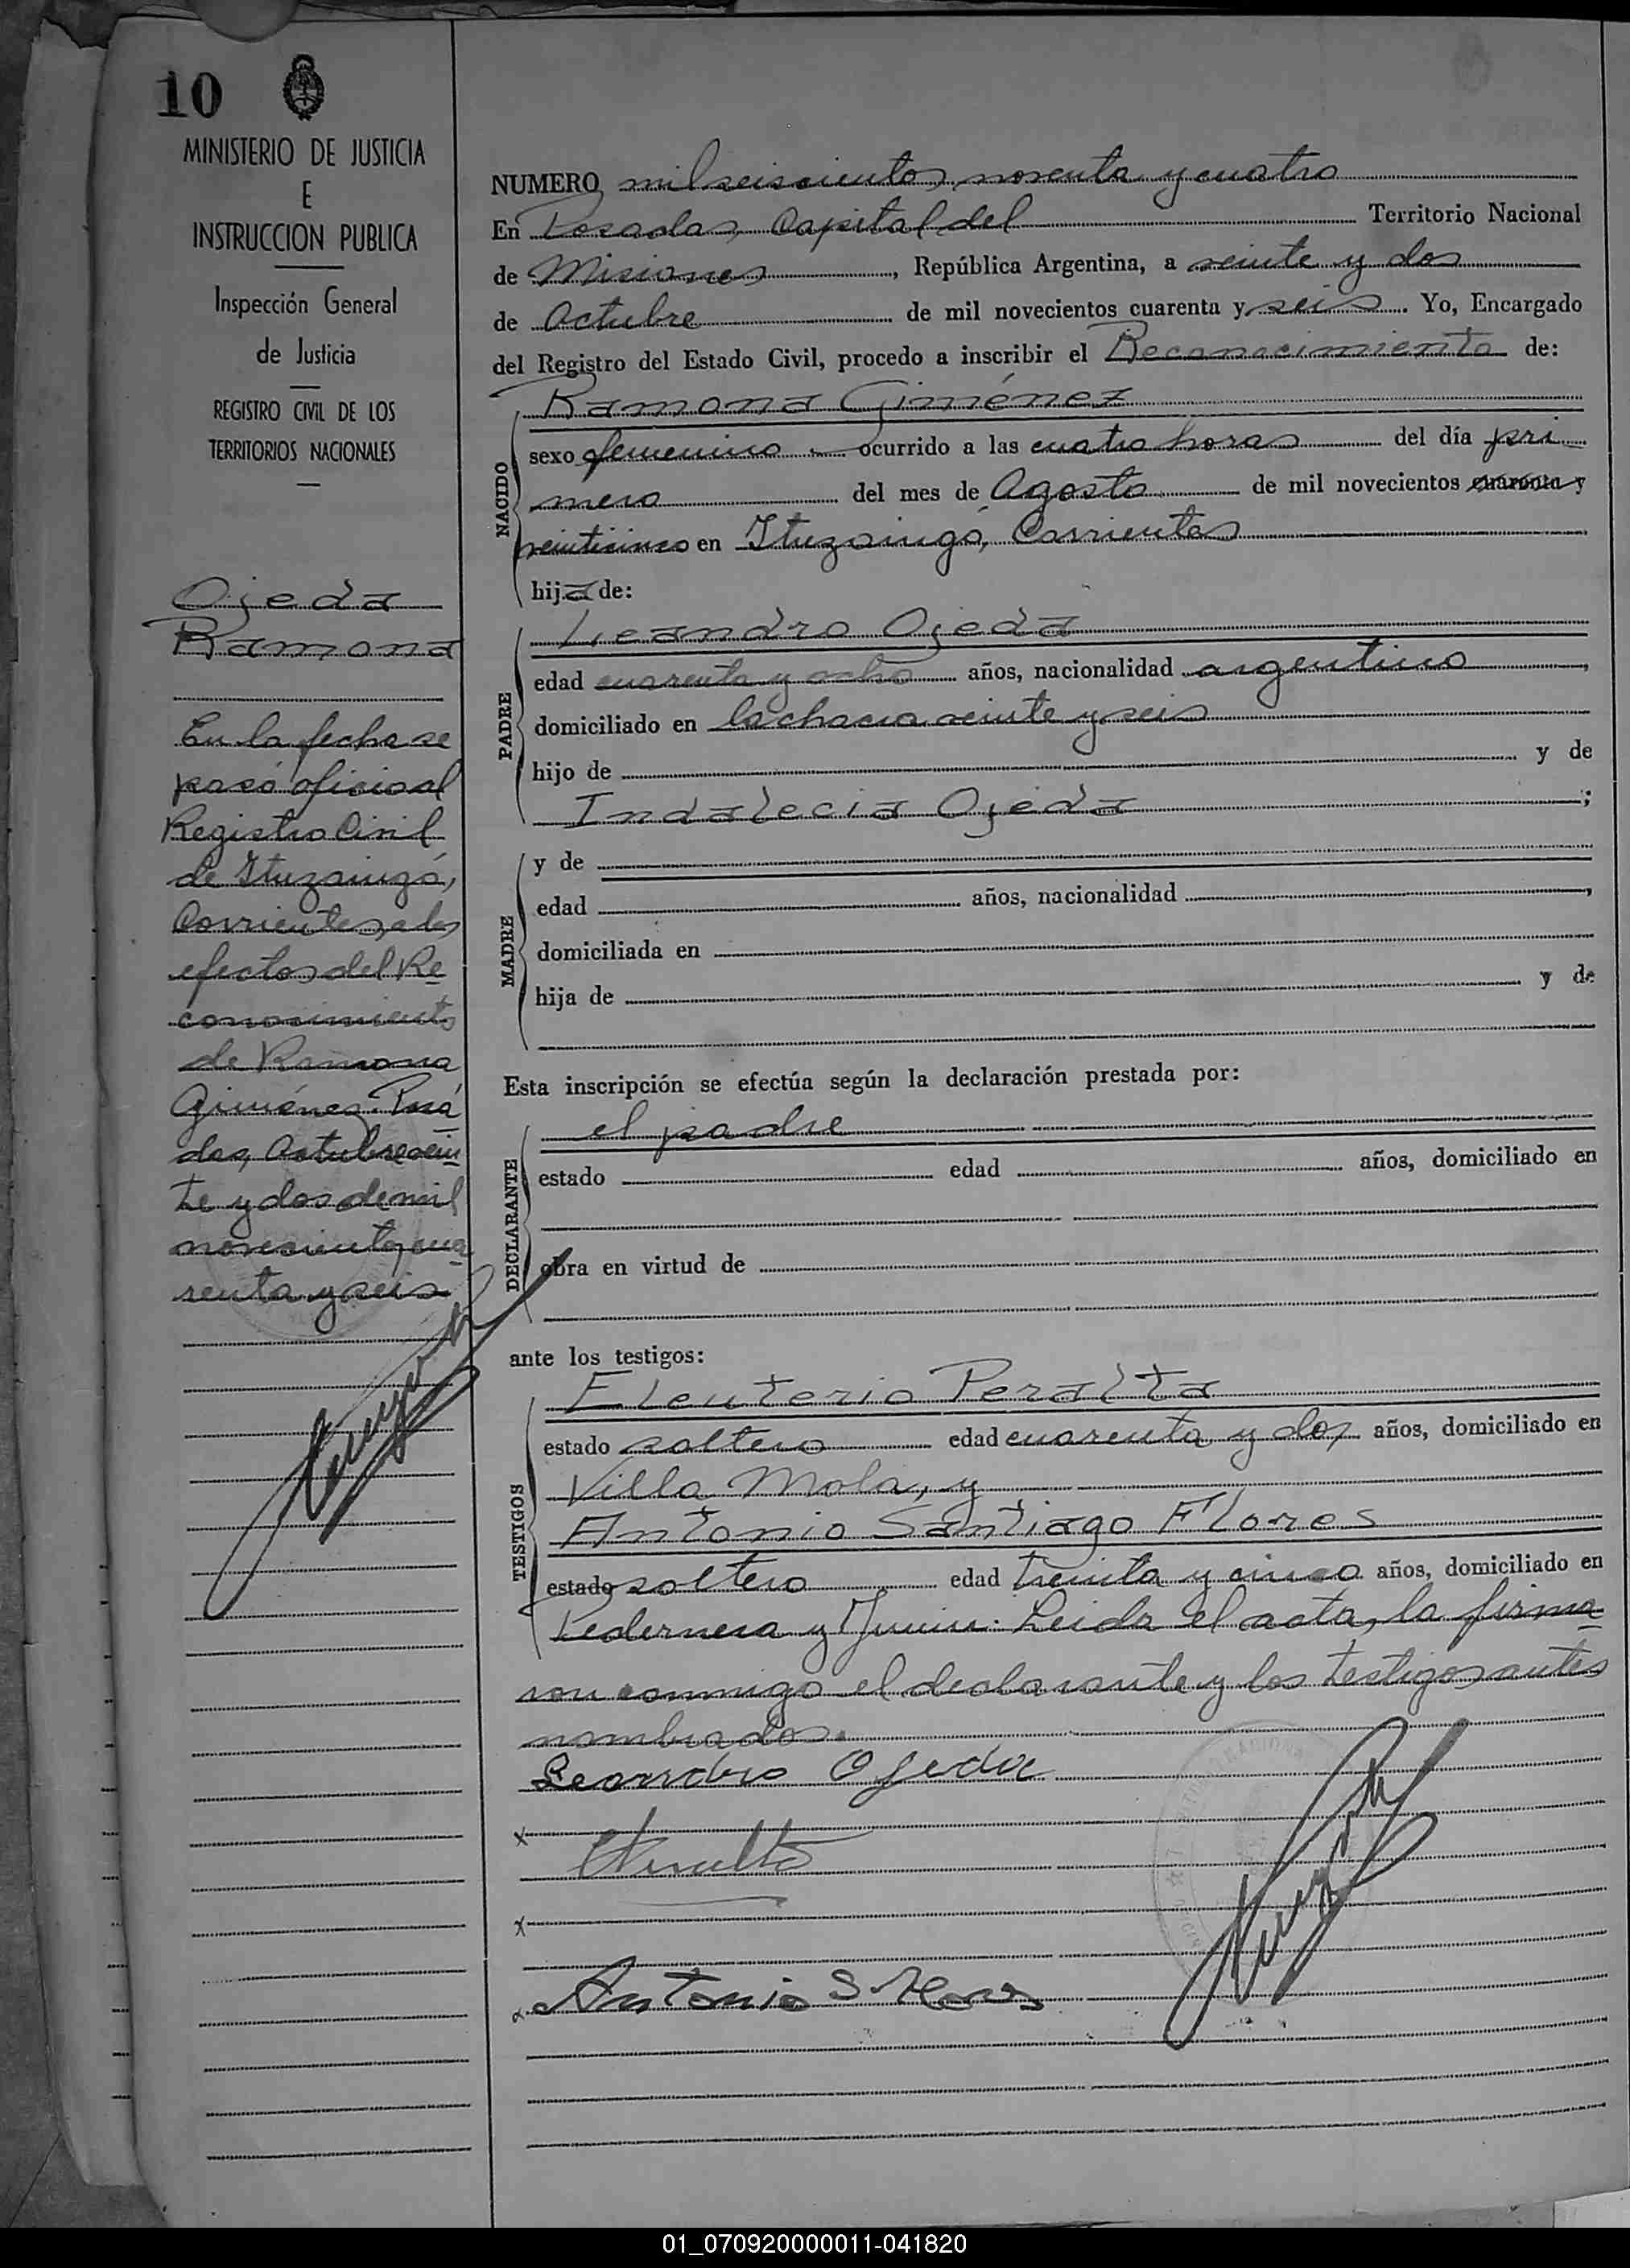 10
MINISTERIO DE JUSTICIA
E
INSTRUCCION PUBLICA
Inspección General
de Justicia
REGISTRO CIVIL DE LOS
TERRITORIOS NACIONALES
Ojeda
Ramona
En la fecha se
pasó oficio al
Registro Civil
de Ituzaingó,
Corrientes, a los
efectos del Re
conocimiento
de Ramona
Giménez. Posa
das, Octubre vein
te y dos de mil
novecientos cua
renta y seis
NUMERO mil seiscientos noventa y cuatro
En Posadas, Capital del Territorio Nacional
de Misiones, República Argentina, a veinte y dos
de Octubre de mil novecientos cuarenta y seis. Yo, Encargado
del Registro del Estado Civil, procedo a inscribir el Reconocimiento de:
NACIDO
Ramona Giménez
sexo femenino ocurrido a las cuatro horas del día pri
mero del mes de Agosto de mil novecientos cuarenta y
veinticinco en Ituzaingó, Corrientes
hija de:
PADRE
Leandro Ojeda
edad cuarenta y ocho años, nacionalidad argentino,
domiciliado en la chacra veinte y seis
hijo de y de
Indalecia Ojeda;
MADRE
y de
edad años, nacionalidad,
domiciliada en
hija de y de
Esta inscripción se efectúa según la declaración prestada por:
DECLARANTE
el padre
estado edad años, domiciliado en
obra en virtud de
ante los testigos:
TESTIGOS
Eleuterio Peralta
estado soltero edad cuarenta y dos años, domiciliado en
Villa Mola, y
Antonio Santiago Flores
estado soltero edad treinta y cinco años, domiciliado en
Pedernera y Junin. Leida el acta, la firma
ron conmigo el declarante y los testigos antes
nombrados.
Leandro Ojeda
x
EPeralta
x
x Antonio S Flores
01_070920000011-041820